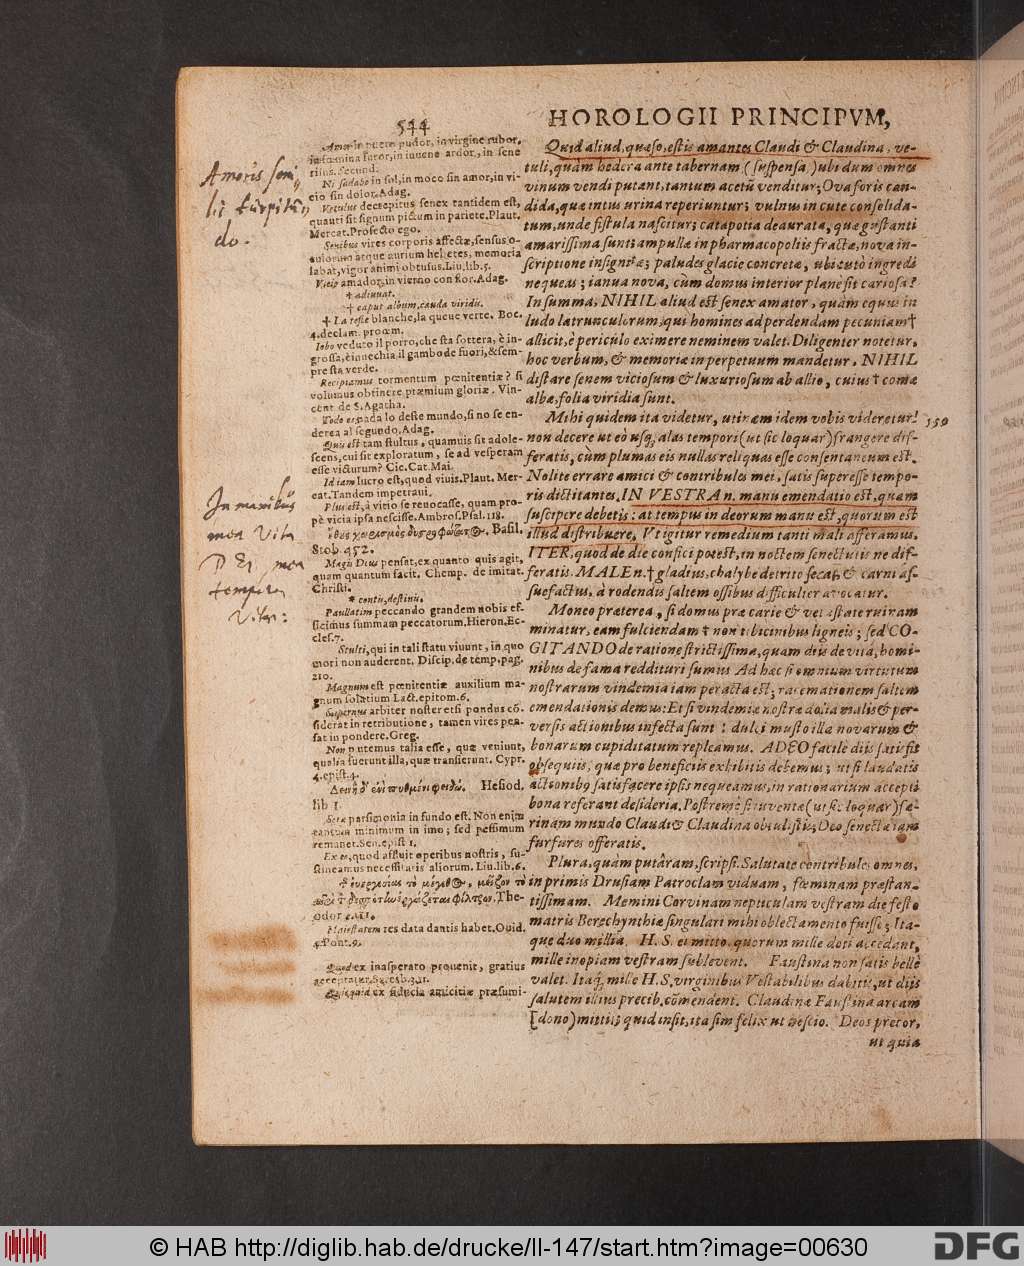 544
HOROLOGII PRINCIPVM,
Amoris seni„
lis turpitu„
do.
In manibus
mea Vita
DEI, mea
tempera
Vitae:
Amor in puero pudor, in virgine rubor,
in fœmina furor, in iuuene ardor, in sene
risus. Secund.
Ni sadabo in sol, in moço sin amor, in vi-
cio sin dolor. Adag.
Vetulus decrepitus senex tantidem est,
quanti sit signum pictum in pariete. Plaut.
Mercat. Profecto ego.
Senibus vires corporis affectæ, sensus o-
culorum atque aurium hebetes, memoria
labat, vigor animi obtusus. Liu. lib. 5.
Vieio amador, in vierno con flor. Adag.
† adiuuat.
† caput album, cauda viridis.
† La teste blanche, la queue verte. Boc.
4. declam. proœm.
veduto il porro, che sta sottera, è in-
grossa, è inuechia, il gambo de fuori, & sem-
pre sta verde.
Recipiamus tormentum pœnitentiæ? si
volumus obtinere præmium gloriæ. Vin-
cent. de S. Agatha.
Todo espada lo deste mundo, si no se en-
dereça al segundo. Adag.
Quis est tam stultus, quamuis sit adole-
scens, cui sit exploratum, se ad vesperam
esse victurum? Cic. Cat. Mai.
Id iam lucro est, quod viuis. Plaut. Mer-
cat. Tandem impetraui.
Plus est, à vitio se reuocasse, quam pro-
pè vicia ipsa nescisse. Ambros. Psal. 118.
Basil.
Stob. 452.
Magis Deus pensat, ex quanto quis agit,
quam quantum facit. Chemp. de imitat.
Christi.
* contis, destinis.
Paullatim peccando grandem nobis ef-
ficimus summam peccatorum. Hieron. Ec-
cles. 7.
Stulti, qui in tali statu viuunt, in quo
mori non auderent. Discip. de temp. pag.
210.
Magnum est pœnitentiæ auxilium ma-
gnum solatium Lact. epitom. 6.
Supernus arbiter noster etsi pondus cō-
siderat in retributione, tamen vires pen-
sat in pondere. Greg.
Non putemus talia esse, quæ veniunt,
qualia fuerunt illa, quæ transierunt. Cypr.
4. epist. 4.
Δεινὴ δ' ἐνὶ πυθμένι φειδώ. Hesiod.
lib 1.
Sera parsimonia in fundo est. Non enim
tantum minimum in imo; sed pessimum
remanet. Sen. epist 1.
Ex eo, quod affluit operibus nostris, su-
stineamus necessitatis aliorum. Liu. lib. 6.
τὸ μέγεθος, μείζον τὸ
The-
odor
Maiestatem res data dantis habet. Ouid.
4. Pont. 9.
Quod ex insperato peruenit, gratius
Quicquid ex fiducia amicitiæ præsumi-
Quid aliud, quæso, estis amantes Claudi & Claudina, ve-
tuli, quàm hedera ante tabernam, (suspensa,) ubi dum omnes
vinum vendi putant, tantum acetū venditur; Ova foris can-
dida, quæ intus urina reperiuntur; vulnus in cute consolida-
tum, unde fistula nascitur; catapotia deaurata, quæ gustanti
amarissima sunt; ampulla in pharmacopoliis fractæ, nova in-
scriptione insignitæ; paludes glacie concretæ, ubi tutò ingredi
nequeas; ianua nova, cùm domus interior planè sit cariosa?
In summa, NIHIL aliud est senex amator, quàm equus in
ludo latrunculorum, qui homines ad perdendam pecuniam †
allicit, è periculo eximere neminem valet. Diligenter notetur,
hoc verbum, & memoriæ in perpetuum mandetur. NIHIL
distare senem viciosum & luxuriosum ab allio, cuius † coma
albæ, folia viridia sunt.
Mihi quidem ita videtur, utinam idem vobis videretur! 350
non decere ut eò usq; alas tempori (ut sic loquar) frangere dif-
feratis, cùm plumas eis nullas reliquas esse consentaneum est.
Nolite errare amici & contribules mei, satis superesse tempo-
ris dictitantes. IN VESTRA n. manu emendatio est, quam
suscipere debetis: at tempus in deorum manu est, quorum est
illud distribuere. Ut igitur remedium tanti mali afferamus.
ITER, quod de die confici potest, in noctem senectutis ne dif-
feratis. MALE n. † gladius, chalybe detrito secat, & carni as-
suefactus, à rodendis saltem ossibus difficulter avocatur.
Moneo præterea, si domus præ carie & vetustate ruinam
minatur, eam fulciendam † non tibicinibus ligneis; sed CO-
GITANDO de ratione strictissima, quam diis de vita, homi-
nibus de fama reddituri sumus Ad hæc si omnium virtutum
nostrarum vindemia iam peracta est; racemationem saltem
emendationis demus: Et si vindemiæ nostræ dolia malis & per-
versis actionibus infecta sunt: dulci musto illa novarum &
bonarum cupiditatum repleamus. ADEO facilè diis satis fit
obsequiis, quæ pro beneficiis exhibitis debemus; ut si laudatis
actionibg satisfacere ipsis nequeamus, in rationarium accepti
bona referant desideria. Postremò si iuventæ (ut sic loquar) fa-
rinam mundo Claudi & Claudina obtulistis; Deo senectæ iam
furfures offeratis.
Plura, quàm putâram, scripsi. Salutate contribules omnes,
in primis Drusiam Patroclam viduam, fœminam præstan-
tissimam. Memini Corvinam nepticulam vestram die festo
matris Berecynthiæ singulari mihi oblectamento fuisse; Ita-
que duo millia, H. S. ei mitto, quorum mille doti accedant,
mille inopiam vestram sublevent. Faustina non satis bellè
valet. Itaq; mille H. S. virginibus Vestalibus dabitis, ut diis
salutem illius precib. cōmendent. Claudinæ Faustina arcam
[dono) mittit; quid insit, ita sim felix ut nescio. Deos precor,
ut quia
© HAB http://diglib.hab.de/drucke/ll-147/start.htm?image=00630
DFG